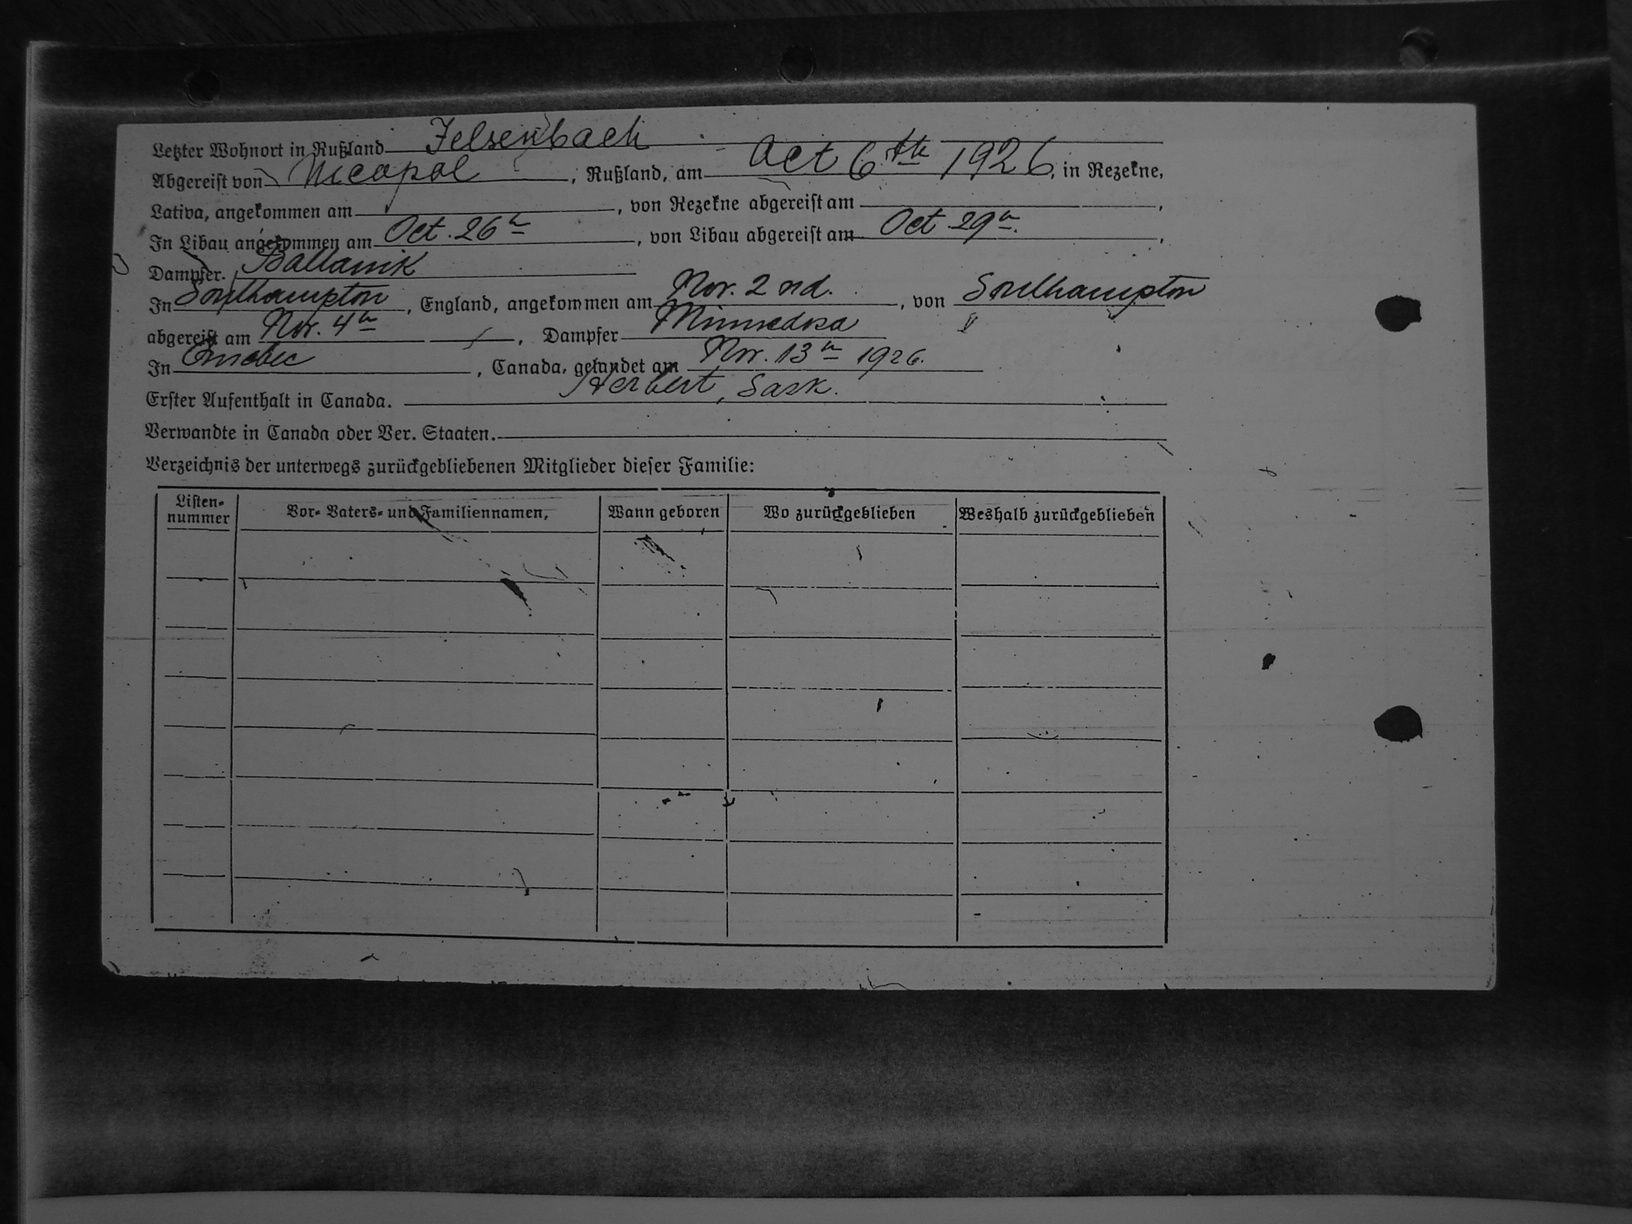 Letzter Wohnort in Rußland Felsenbach
Abgereist von Nicopol, Rußland, am Oct 6th 1926, in Rezekne,
Lativa, angekommen am , von Rezekne abgereist am ,
In Libau angekommen am Oct. 26th, von Libau abgereist am Oct 29th.,
Dampfer. Baltannik
In Southampton, England, angekommen am Nov. 2nd., von Southampton
abgereist am Nov. 4th, Dampfer Minnedosa
In Quebec, Canada, gelandet am Nov. 13th 1926.
Erster Aufenthalt in Canada. Herbert, Sask.
Verwandte in Canada oder Ver. Staaten.
Verzeichnis der unterwegs zurückgebliebenen Mitglieder dieser Familie:
Listen-nummer Vor- Vaters- und Familiennamen, Wann geboren Wo zurückgeblieben Weshalb zurückgeblieben